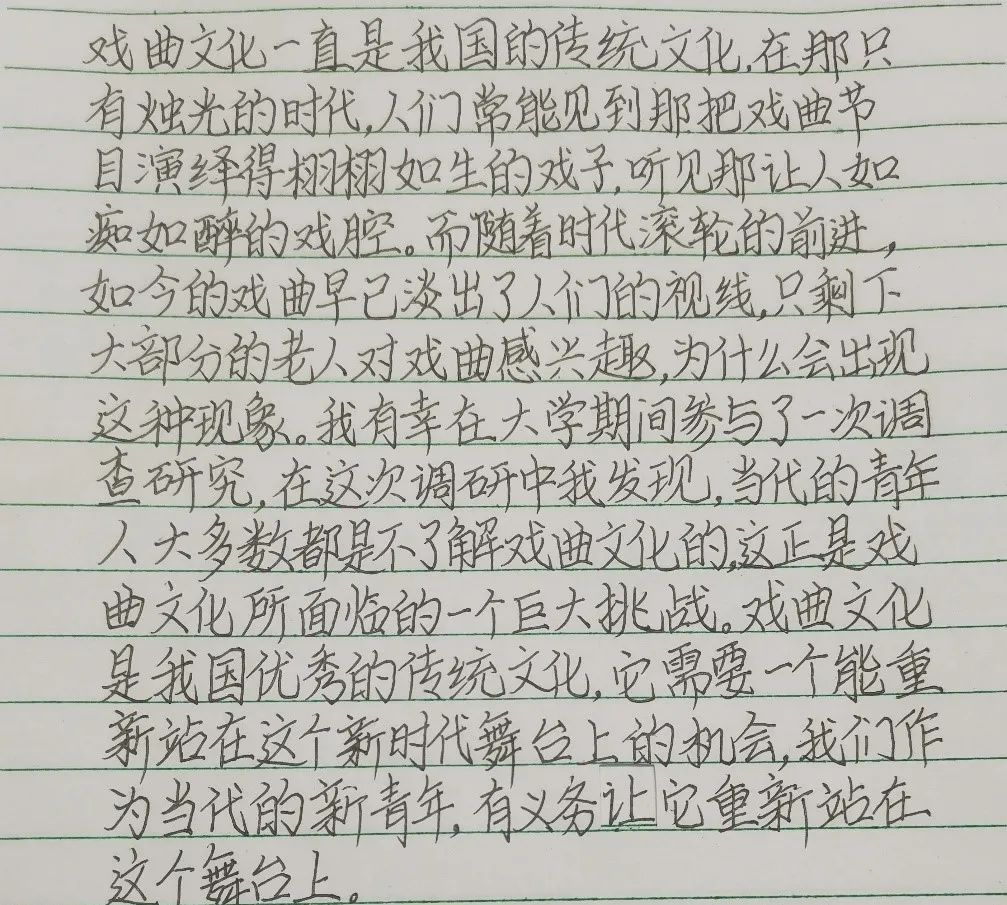 戏曲文化一直是我国的传统文化,在那只
有烛光的时代,人们常能见到那把戏曲节
目演绎得栩栩如生的戏子,听见那让人如
痴如醉的戏腔。而随着时代滚轮的前进,
如今的戏曲早已淡出了人们的视线,只剩下
大部分的老人对戏曲感兴趣,为什么会出现
这种现象。我有幸在大学期间参与了一次调
查研究,在这次调研中我发现,当代的青年
人大多数都是不了解戏曲文化的,这正是戏
曲文化所面临的一个巨大挑战。戏曲文化
是我国优秀的传统文化,它需要一个能重
新站在这个新时代舞台上的机会,我们作
为当代的新青年,有义务让它重新站在
这个舞台上。